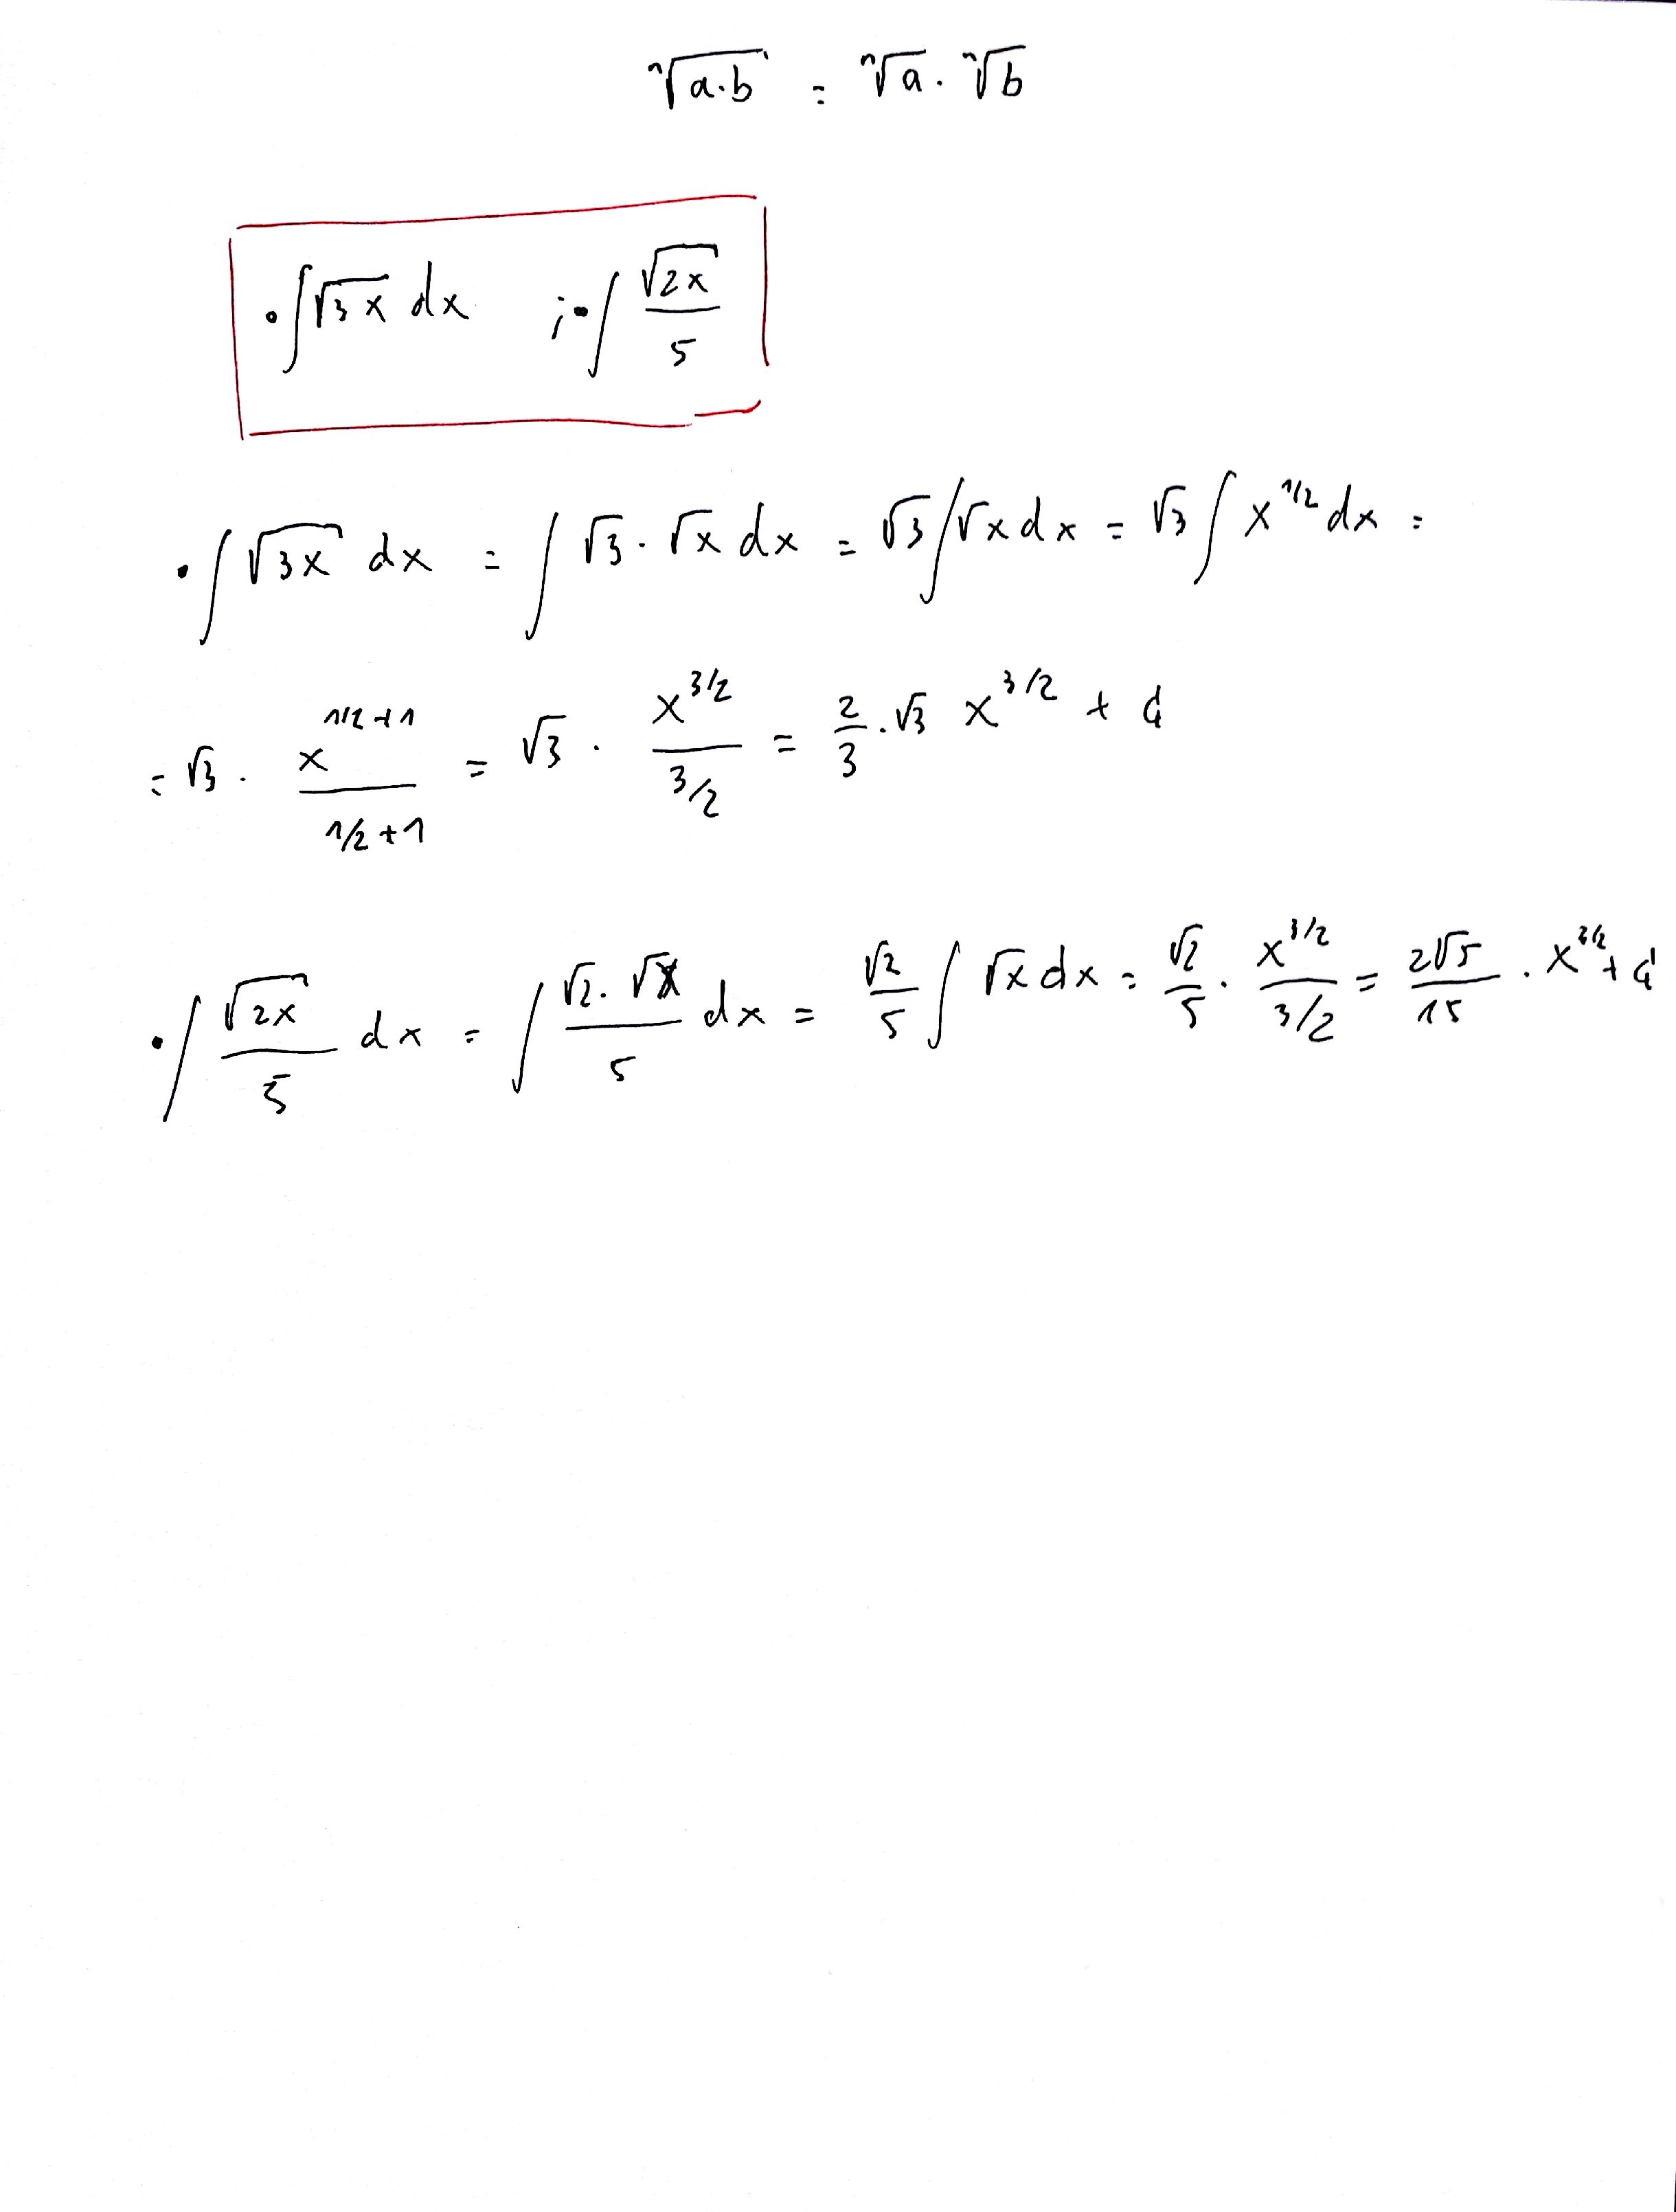 ⁿ√(a·b) = ⁿ√a · ⁿ√b
• ∫√(3x) dx ; • ∫ √(2x)/5
• ∫√(3x) dx = ∫ √3 · √x dx = √3 ∫√x dx = √3 ∫ x^(1/2) dx =
= √3 · x^(1/2+1)/(1/2+1) = √3 · x^(3/2)/(3/2) = 2/3 · √3 x^(3/2) + C
• ∫ √(2x)/5 dx = ∫ (√2 · √x)/5 dx = √2/5 ∫ √x dx = √2/5 · x^(3/2)/(3/2) = 2√5/15 · x^(3/2) + C